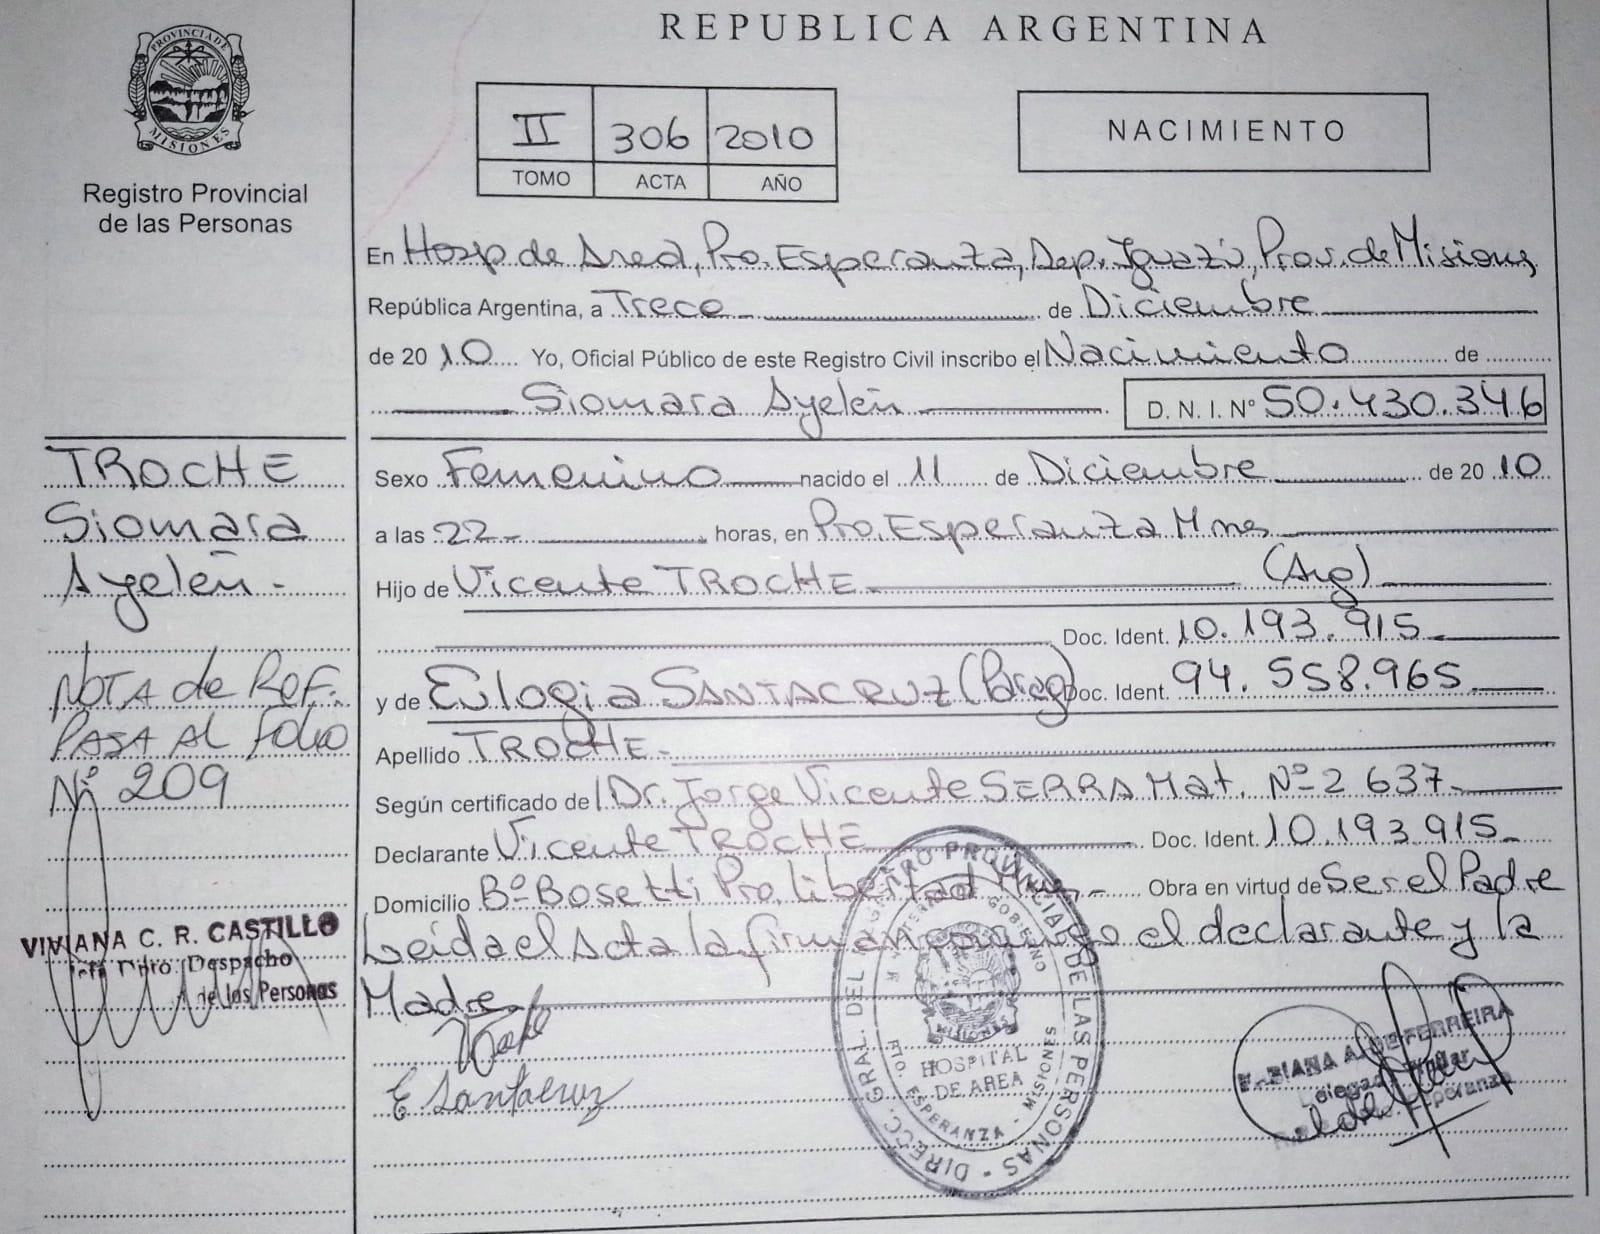 REPUBLICA ARGENTINA
PROVINCIA DE MISIONES
Registro Provincial
de las Personas
II 306 2010
TOMO ACTA AÑO
NACIMIENTO
En Hosp de Area, Pto. Esperanza, Dep. Iguazú, Prov. de Misiones
República Argentina, a Trece de Diciembre
de 2010 Yo, Oficial Público de este Registro Civil inscribo el Nacimiento de
Siomara Ayelén D. N. I. Nº 50.430.346
TROCHE
Siomara
Ayelén -
Sexo Femenino nacido el 11 de Diciembre de 2010
a las 22- horas, en Pto. Esperanza Mnes
Hijo de Vicente TROCHE (Arg)
Doc. Ident. 10.193.915
y de Eulogia SANTACRUZ (Parag) Doc. Ident. 94.558.965
Apellido TROCHE -
Según certificado de Dr. Jorge Vicente SERRA Mat. Nº 2637
Declarante Vicente TROCHE Doc. Ident. 10.193.915
Domicilio Bº Bosetti Pto. Libertad Obra en virtud de Ser el Padre
Leída el Acta la firman conmigo el declarante y la
Madre
NOTA de REF.
PASA AL FOLIO
Nº 209
VIVIANA C. R. CASTILLO
Jefa Dpto. Despacho
de las Personas
E Santacruz
DIRECC. GRAL. DEL REGISTRO PROVINCIAL DE LAS PERSONAS
GOBIERNO
MISIONES
HOSPITAL
DE AREA
PTO. ESPERANZA - MISIONES
FERREIRA
Esperanza